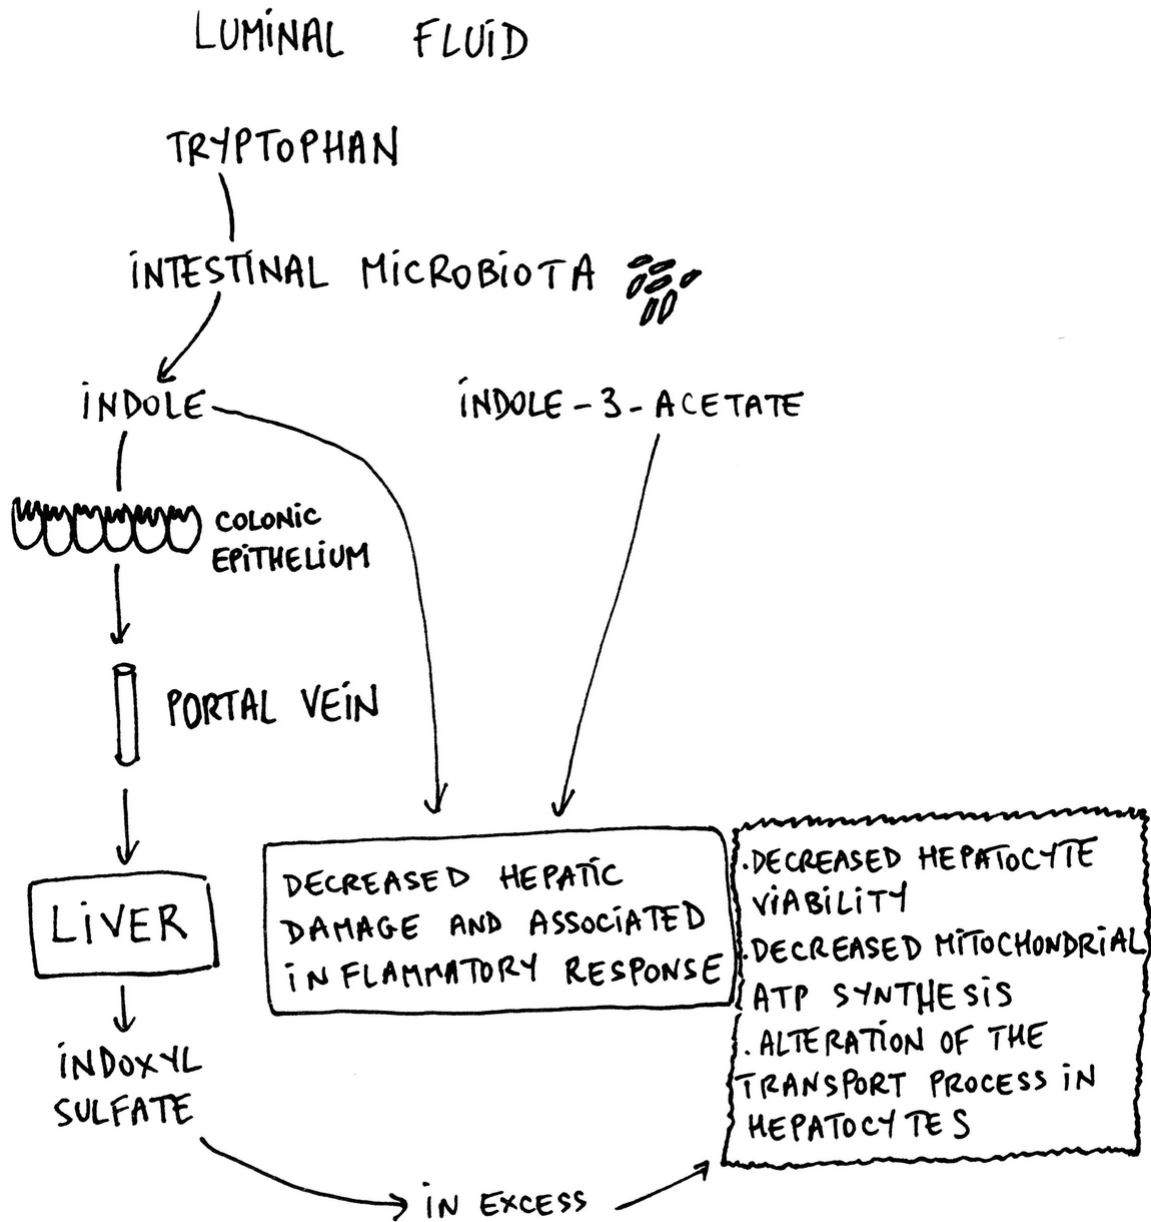 LUMINAL FLUID
TRYPTOPHAN
INTESTINAL MICROBIOTA
INDOLE
INDOLE-3-ACETATE
COLONIC
EPITHELIUM
PORTAL VEIN
LIVER
INDOXYL
SULFATE
DECREASED HEPATIC
DAMAGE AND ASSOCIATED
INFLAMMATORY RESPONSE
.DECREASED HEPATOCYTE
VIABILITY
.DECREASED MITOCHONDRIAL
ATP SYNTHESIS
.ALTERATION OF THE
TRANSPORT PROCESS IN
HEPATOCYTES
IN EXCESS